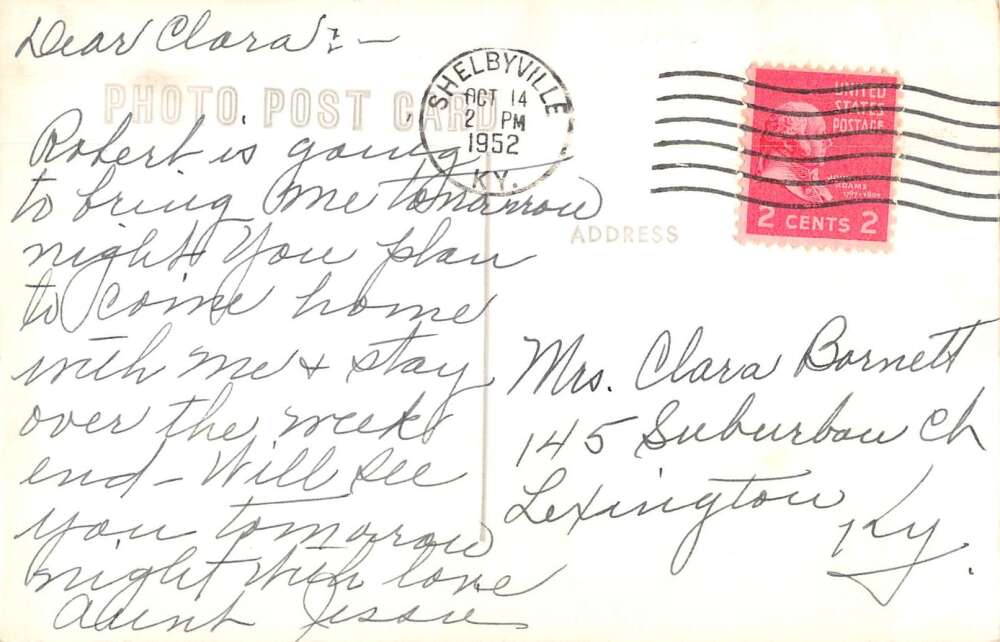 Dear Clara:-
PHOTO POST CARD
Robert is going
to bring me tomarrow
night You plan
to come home
with me & stay
over the week
end - Will see
you tomarrow
night With love
Aunt Jessie
SHELBYVILLE
OCT 14
2 PM
1952
KY.
UNITED
STATES
POSTAGE
JOHN
ADAMS
1797-1801
2 CENTS 2
ADDRESS
Mrs. Clara Barnett
145 Suburban Ch
Lexington
Ky.